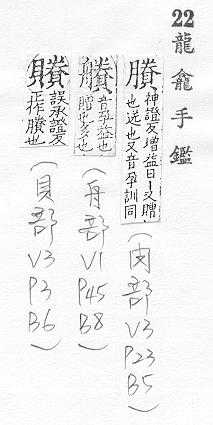 22 龍龕手鑑
賸 神證反增益曰丨又贈
也送也又音孕訓同
(肉部 V3 P23 B5)
音孕益也
(舟部 V1 P45 B8)
誤承證反
正作賸也
(貝部 V3 P3 B6)